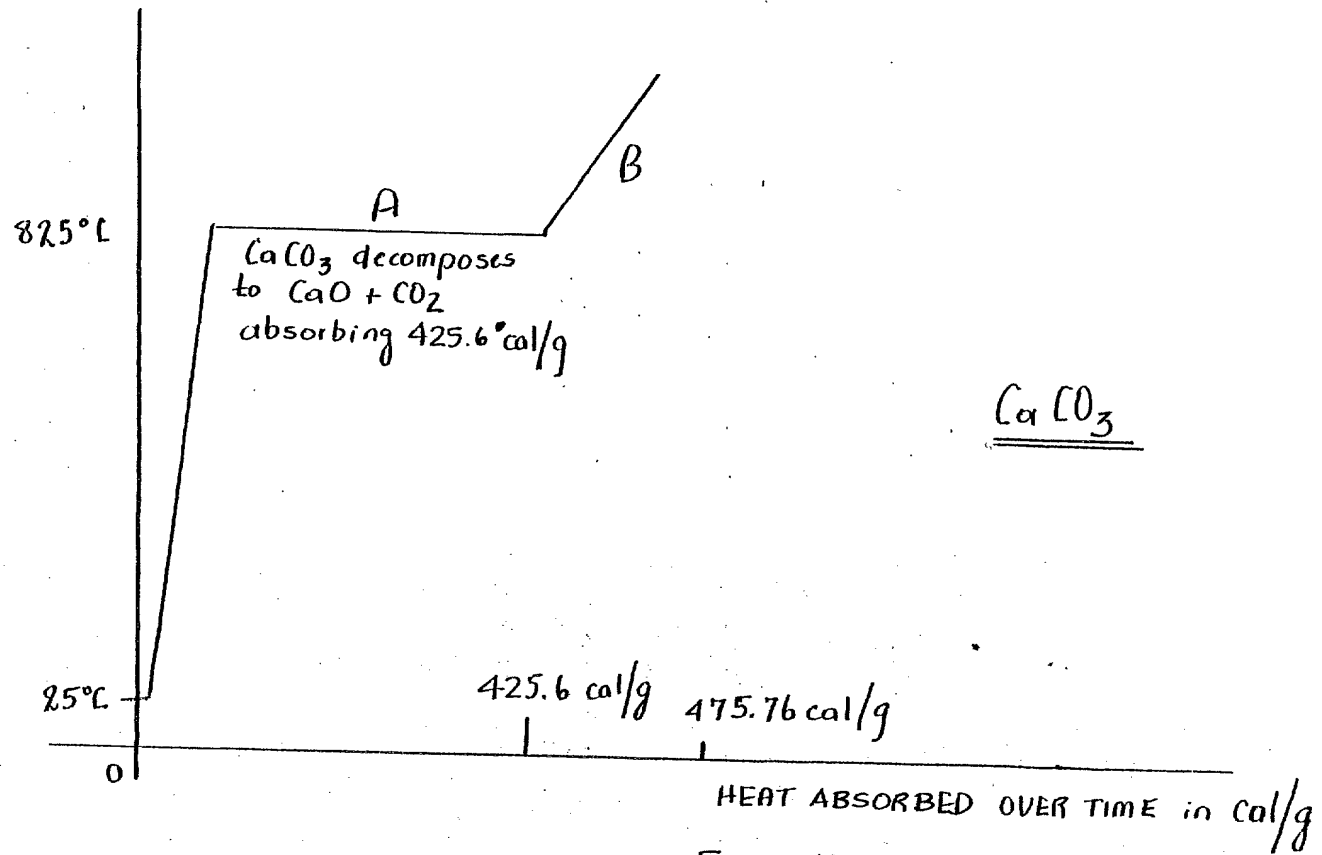 B
A
825°C
CaCO3 decomposes
to CaO + CO2
absorbing 425.6 cal/g
CaCO3
25°C
425.6 cal/g
475.76 cal/g
0
HEAT ABSORBED OVER TIME in Cal/g